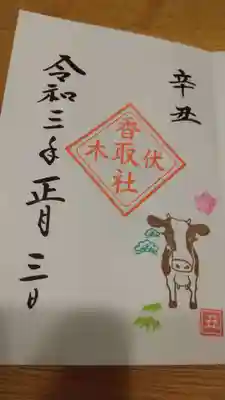 辛丑
香取社
木伏
丑
令和三年正月三日